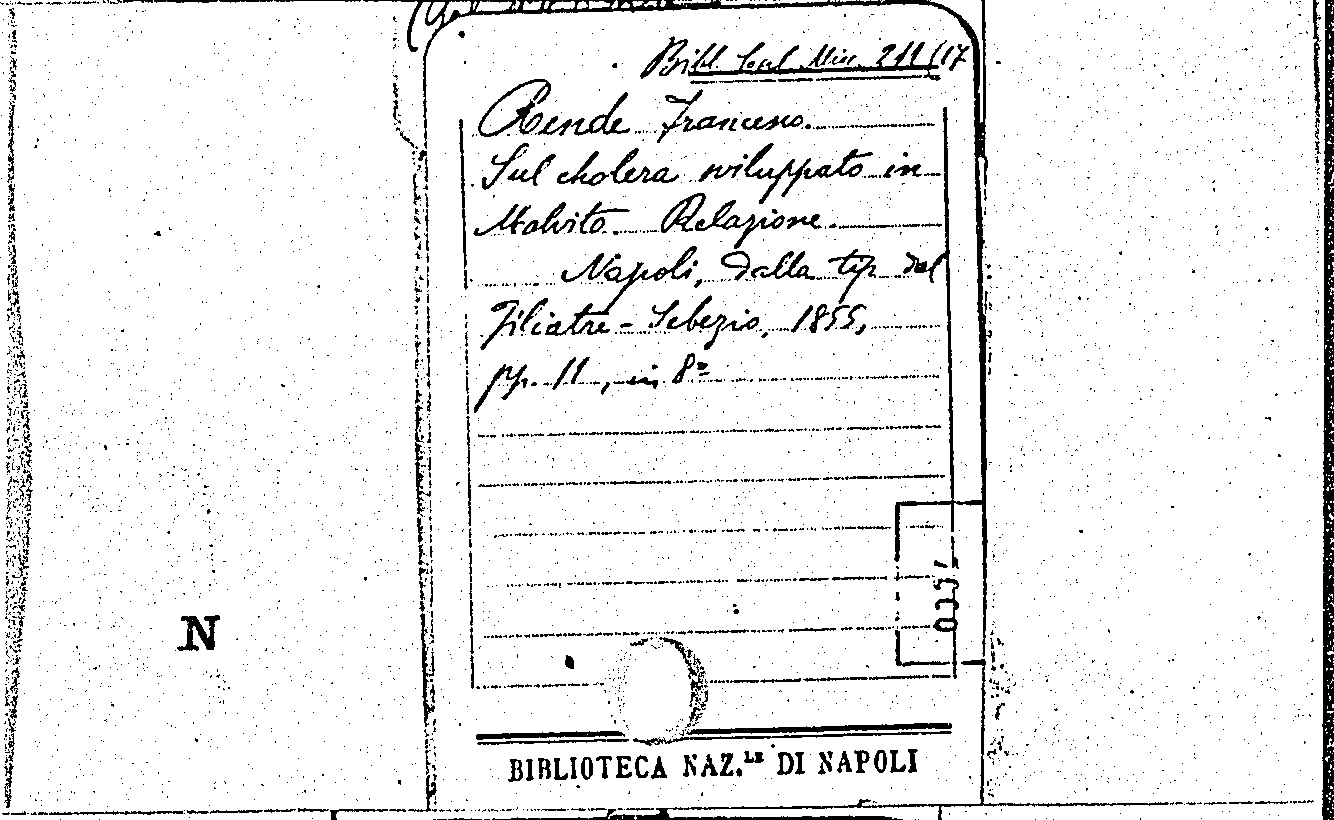 Bibl. Cent. Misc. 211/17
Rende Francesco.
Sul cholera sviluppato in
Malvito. Relazione.
Napoli, dalla tip del
Filiatre-Sebezio, 1855,
pp. 11, in 8º
N
BIBLIOTECA NAZ.LE DI NAPOLI